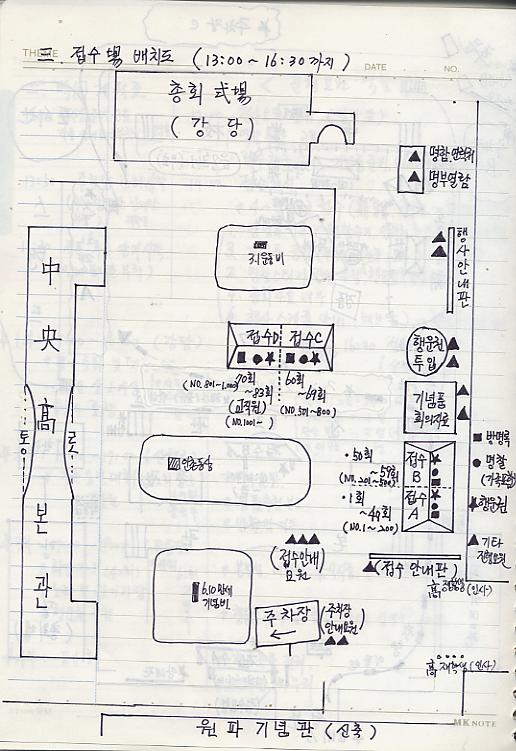 三. 접수場 배치도 (13:00~16:30까지)
THEME
DATE
NO.
총회 式場
(강당)
명부열람
행사안내판
3.1운동비
접수D
접수C
행운권
투입
(NO. 801~1,000)
70회
~83회
(교직원)
(NO.1001~)
60회
~69회
(NO.501~800)
기념품
회의자료
中央高본관
통로
인촌동상
·50회
~59회
(NO.201~500)
·1회
~49회
(NO.1~200)
접수
B
접수
A
방명록
명찰
(가족포함)
행운권
기타
진행요원
(접수안내)
요원
(접수 안내판)
(인사)
6.10만세
기념비
주차장
(주차장
안내요원)
高 재학생 (인사)
원파기념관 (신축)
MK NOTE